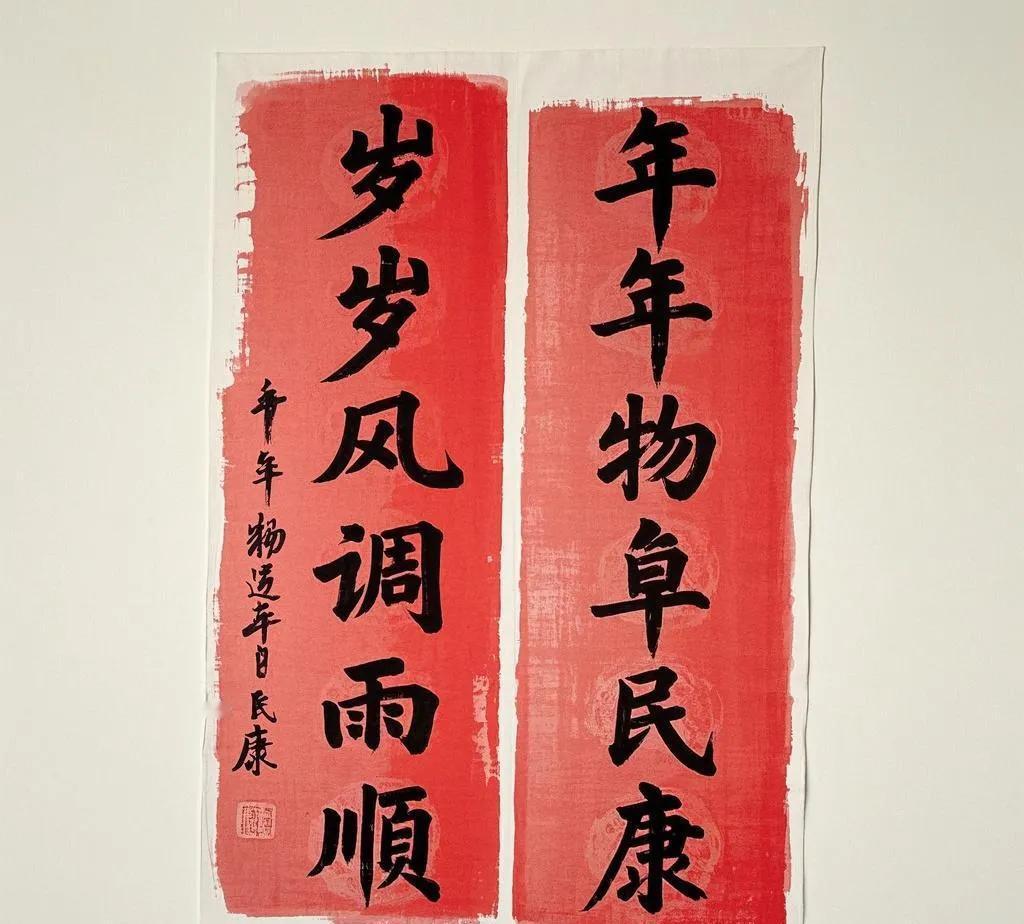 年年物阜民康
岁岁风调雨順
年年物造年日民康